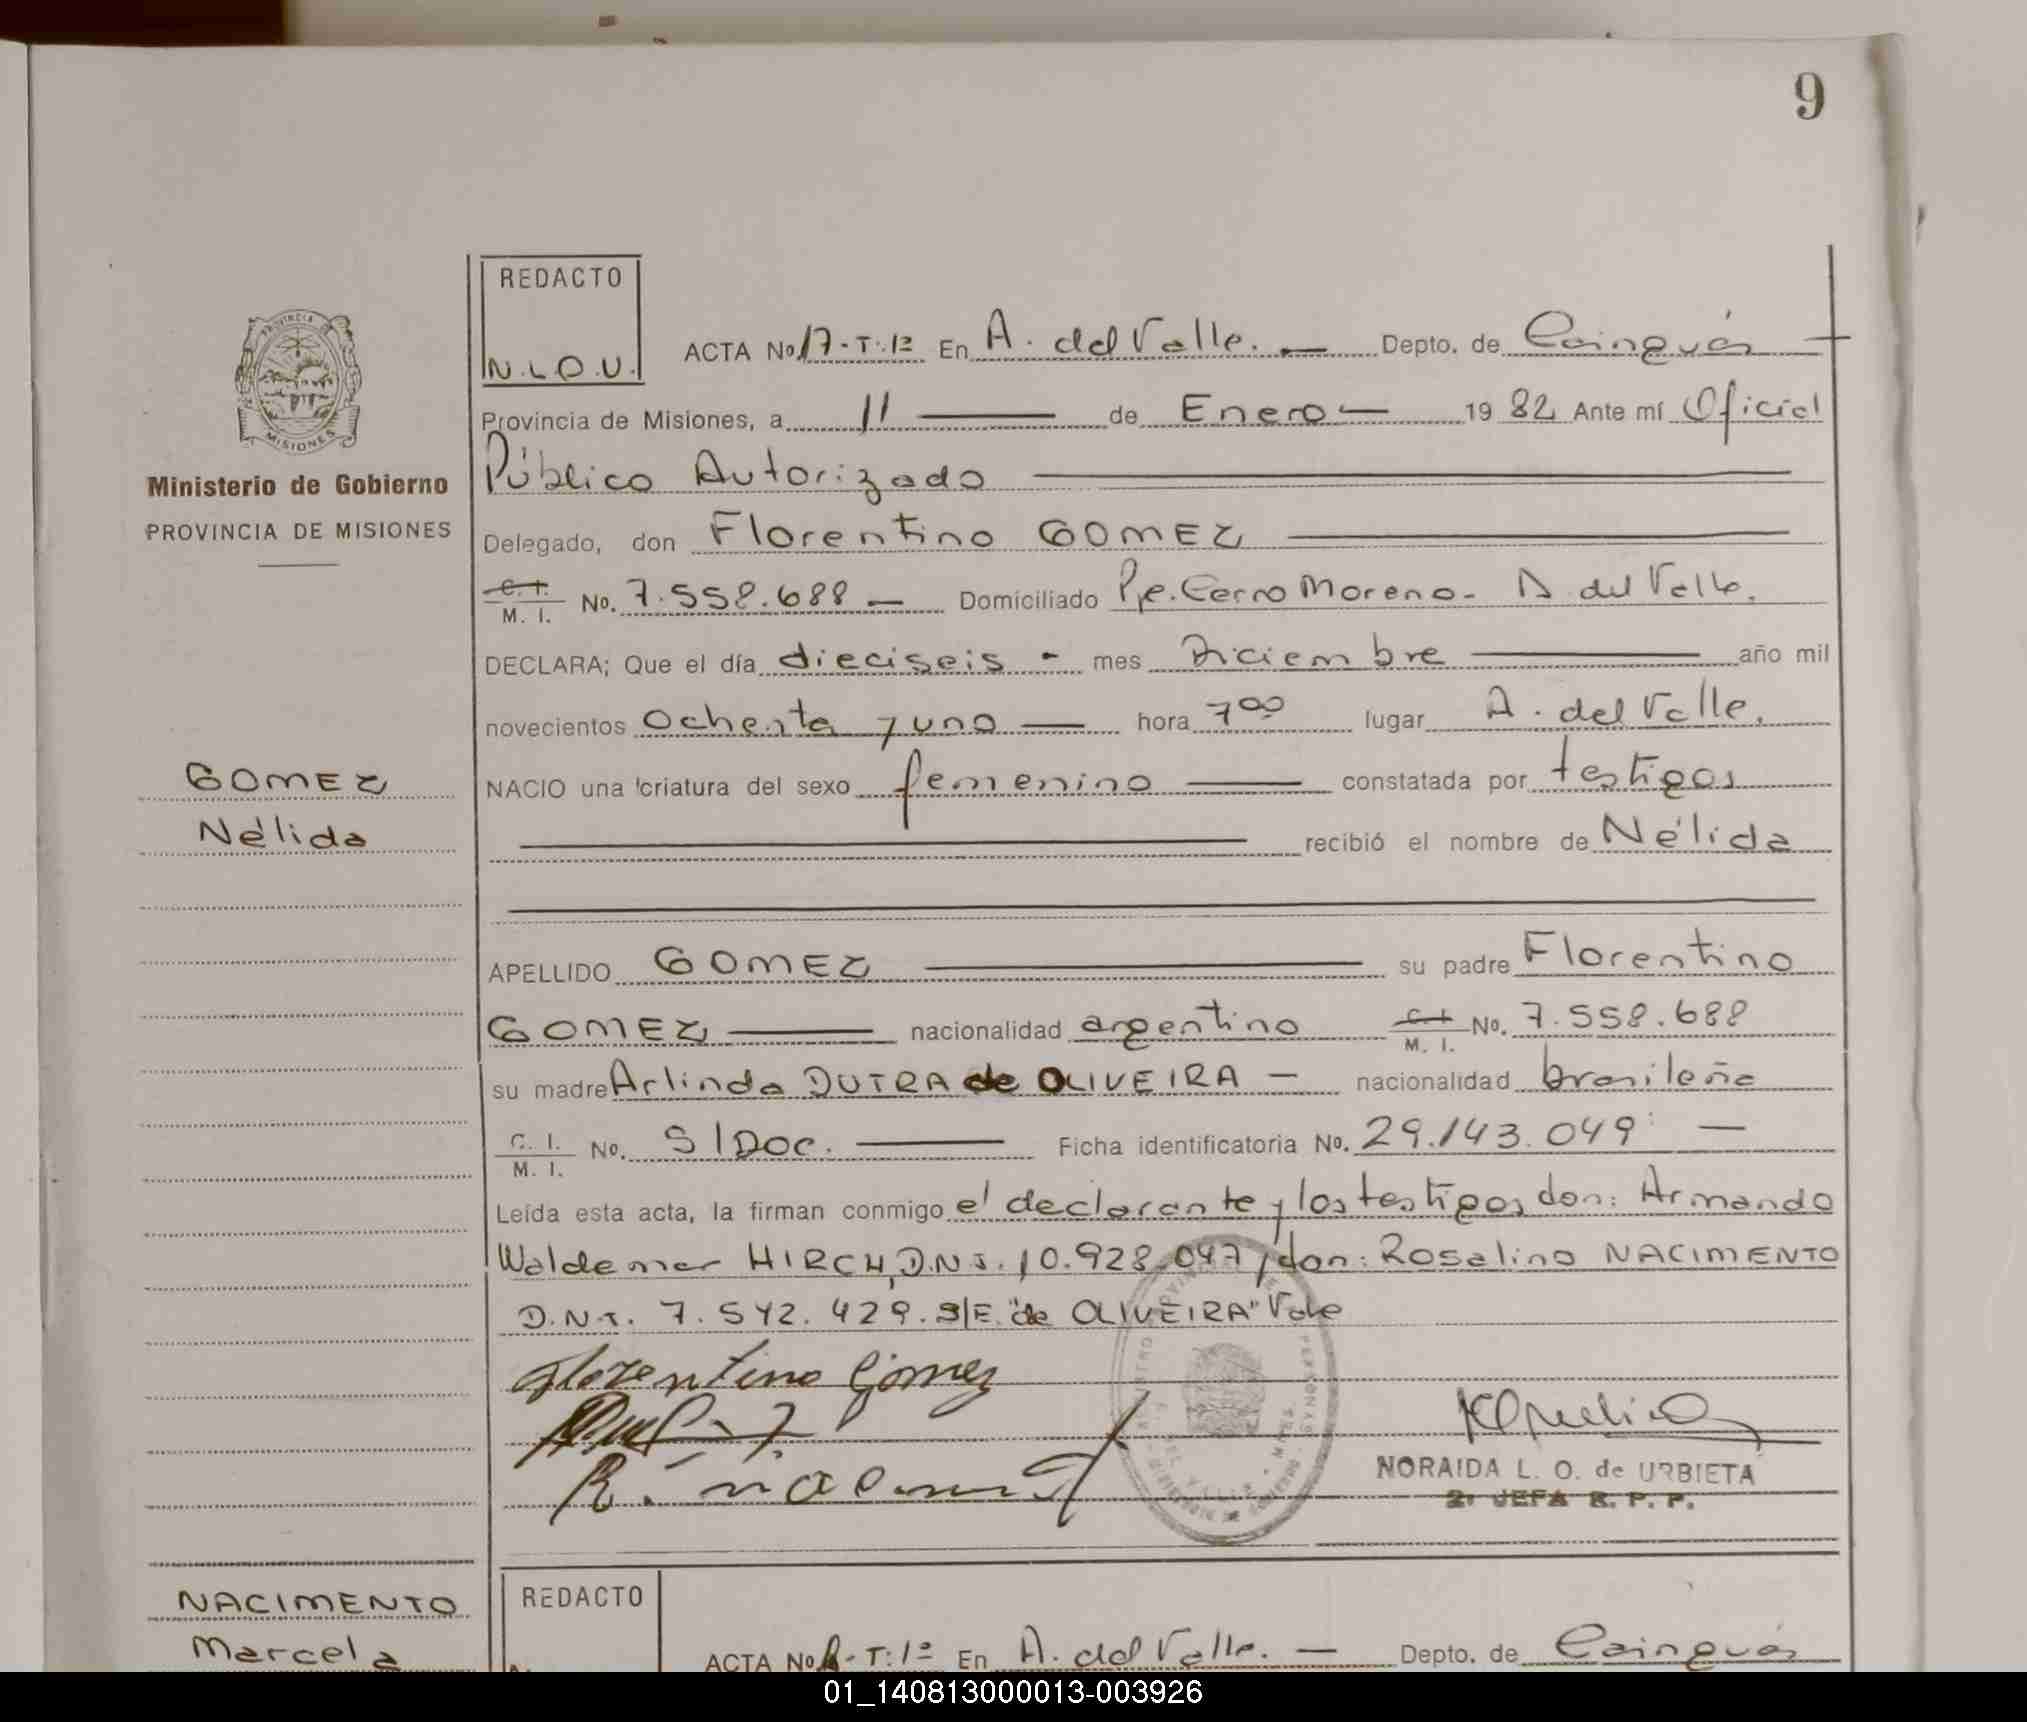 9
REDACTO
N.L.O.U.
ACTA No. 17-T:1º En A. del Valle. — Depto. de Cainguás
Provincia de Misiones, a 11 — de Enero — 1982 Ante mí Oficial
Público Autorizado
Delegado, don Florentino GOMEZ
C. I. M. I. No. 7.558.688 — Domiciliado Pje. Cerro Moreno - A. del Valle.
DECLARA; Que el día dieciseis - mes Diciembre — año mil
novecientos Ochenta y uno — hora 7 00 lugar A. del Valle.
NACIO una criatura del sexo femenino — constatada por testigos
— recibió el nombre de Nélida
APELLIDO GOMEZ — su padre Florentino
GOMEZ — nacionalidad argentino C. I. M. I. No. 7.558.688
su madre Arlinda DUTRA de OLIVEIRA — nacionalidad brasileña
C. I. M. I. No. S/Doc. — Ficha identificatoria No. 29.143.049 —
Leída esta acta, la firman conmigo el declarante y los testigos don: Armando
Waldemar HIRCH, D.N.I. 10.928.047 y don: Rosalino NACIMENTO
D.N.I. 7.542.429. S/E. "de OLIVEIRA" Vale
Florentino Gómez
NORAIDA L. O. de URBIETA
2: JEFA R. P. P.
PROVINCIA
MISIONES
Ministerio de Gobierno
PROVINCIA DE MISIONES
GOMEZ
Nélida
NACIMENTO
Marcela
REDACTO
ACTA No. T:1º En A. del Valle. — Depto. de Cainguás
01_140813000013-003926